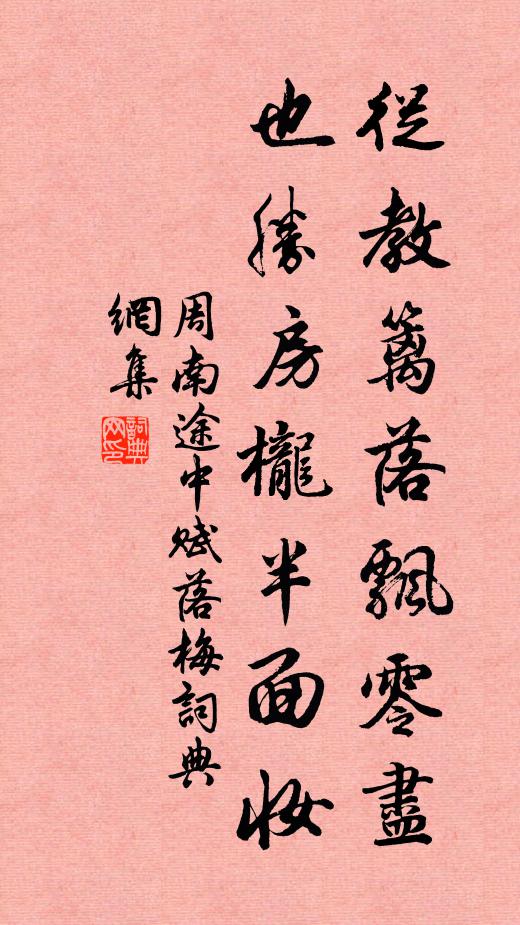 從教篱落飄零盡
也勝房櫳半面妝
周南途中賦落梅詞典
網集
詞典网印